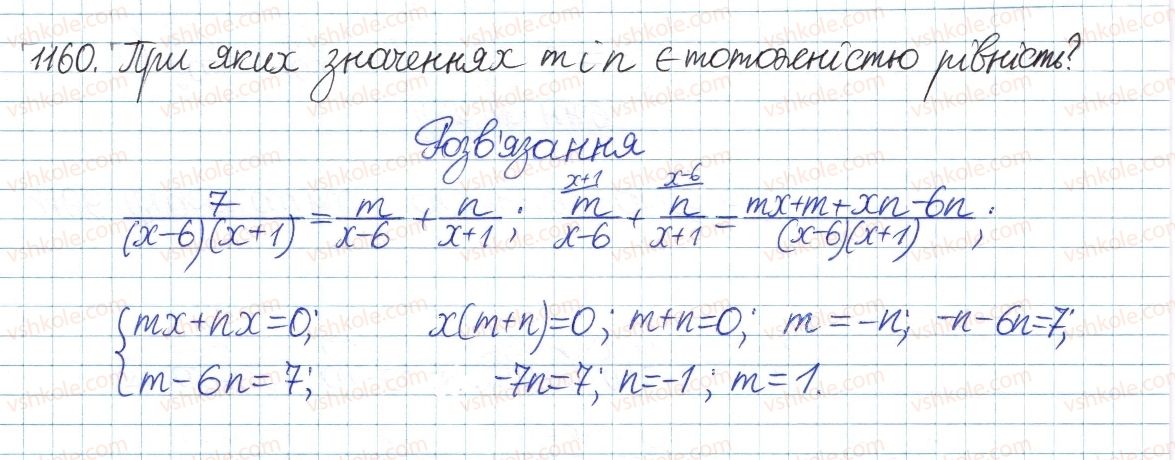 1160. При яких значеннях m і n є тотожністю рівність?
Розв'язання
7/((x-6)(x+1)) = m/(x-6) + n/(x+1); (x+1) m/(x-6) + (x-6) n/(x+1) = (mx+m+xn-6n)/((x-6)(x+1));
{mx+nx=0; x(m+n)=0; m+n=0; m=-n; -n-6n=7;
m-6n=7; -7n=7; n=-1; m=1.